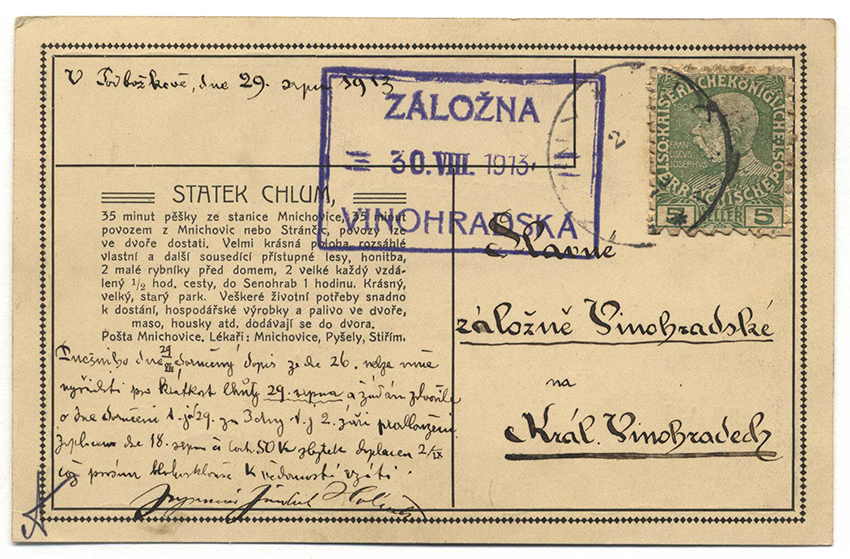 V dne 29. srpna 1913
ZÁLOŽNA
30.VIII. 1913
VINOHRADSKÁ
STATEK CHLUM,
35 minut pěšky ze stanice Mnichovice, 35 minut
povozem z Mnichovic nebo Stránčic, povozy lze
ve dvoře dostati. Velmi krásná poloha, rozsáhlé
vlastní a další sousedící přístupné lesy, honitba,
2 malé rybníky před domem, 2 velké každý vzdá-
lený 1/2 hod. cesty, do Senohrab 1 hodinu. Krásný,
velký, starý park. Veškeré životní potřeby snadno
k dostání, hospodářské výrobky a palivo ve dvoře,
maso, housky atd. dodávají se do dvora.
Pošta Mnichovice. Lékaři: Mnichovice, Pyšely, Stiřím.
Dnešního dne 29/VIII doručený dopis ze dne 26. nelze mně
vyříditi pro krátkost lhůty 29. srpna a žádám zdvořile
o dne doručení t. j. 29. za 3 dny t. j. 2. září prodloužení
Zaplaceno dne 18. srpna 50 K zbytek doplacen 2/IX
což prosím k vědomosti vzíti
KAIS. KÖNIGLICHE
ÖSTERREICHISCHE POST
1908
FRAN-
CISCVS
IOSEPHVS
5 HELLER 5
Slavné
záložně Vinohradské
na
Král. Vinohradech